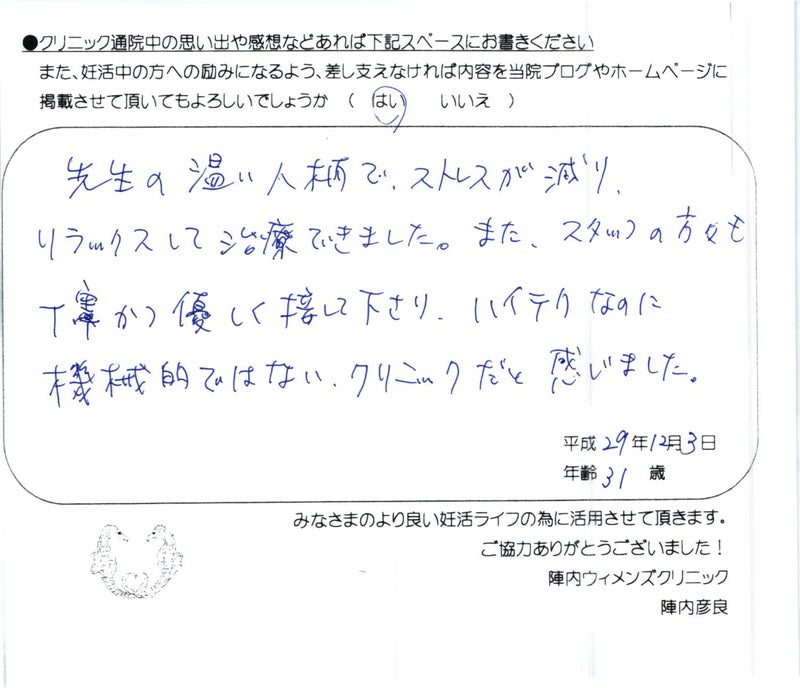 ●クリニック通院中の思い出や感想などあれば下記スペースにお書きください
また、妊活中の方への励みになるよう、差し支えなければ内容を当院ブログやホームページに
掲載させて頂いてもよろしいでしょうか （ はい いいえ ）
先生の温い人柄で、ストレスが減り、
リラックスして治療できました。また、スタッフの方々も
丁寧かつ優しく接して下さり、ハイテクなのに
機械的ではない、クリニックだと感じました。
平成29年12月3日
年齢31歳
みなさまのより良い妊活ライフの為に活用させて頂きます。
ご協力ありがとうございました！
陣内ウィメンズクリニック
陣内彦良